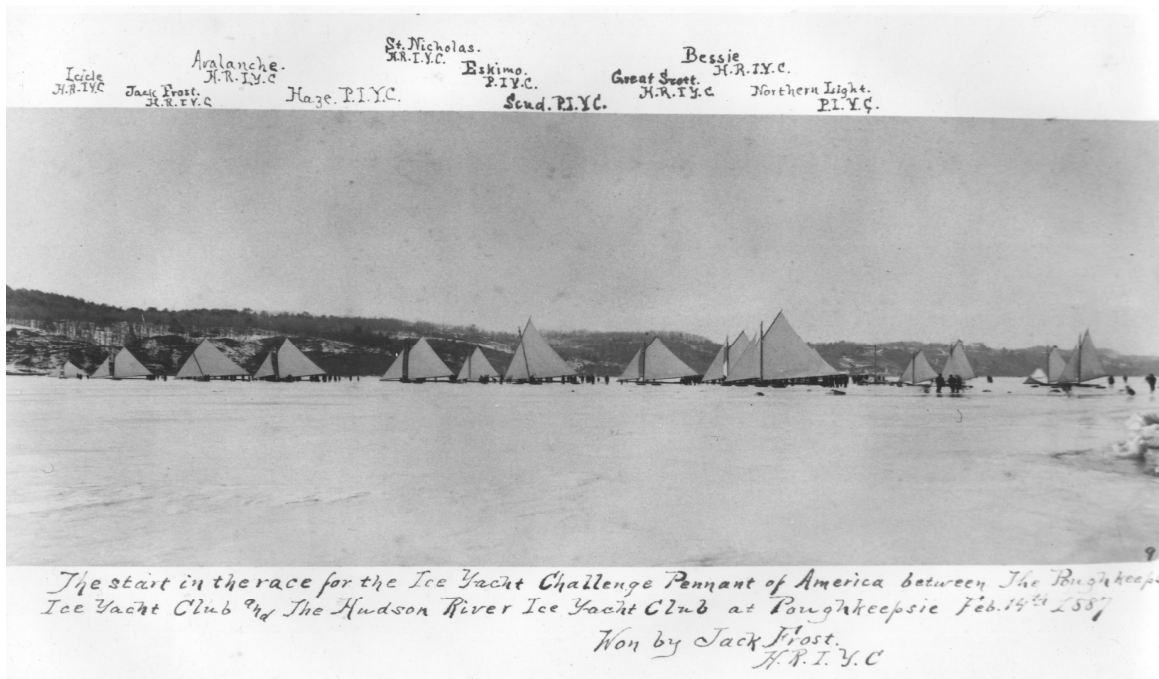 Icicle
H.R.I.Y.C
Jack Frost.
H.R.I.Y.C
Avalanche.
H.R.I.Y.C.
Haze. P.I.Y.C.
St. Nicholas.
H.R.I.Y.C.
Eskimo.
P.I.Y.C.
Scud. P.I.Y.C.
Great Scott.
H.R.I.Y.C
Bessie
H.R.I.Y.C.
Northern Light.
P.I.Y.C.
9
The start in the race for the Ice Yacht Challenge Pennant of America between The Poughkeeps
Ice Yacht Club and The Hudson River Ice Yacht Club at Poughkeepsie Feb. 14th 1887
Won by Jack Frost.
H.R.I.Y.C